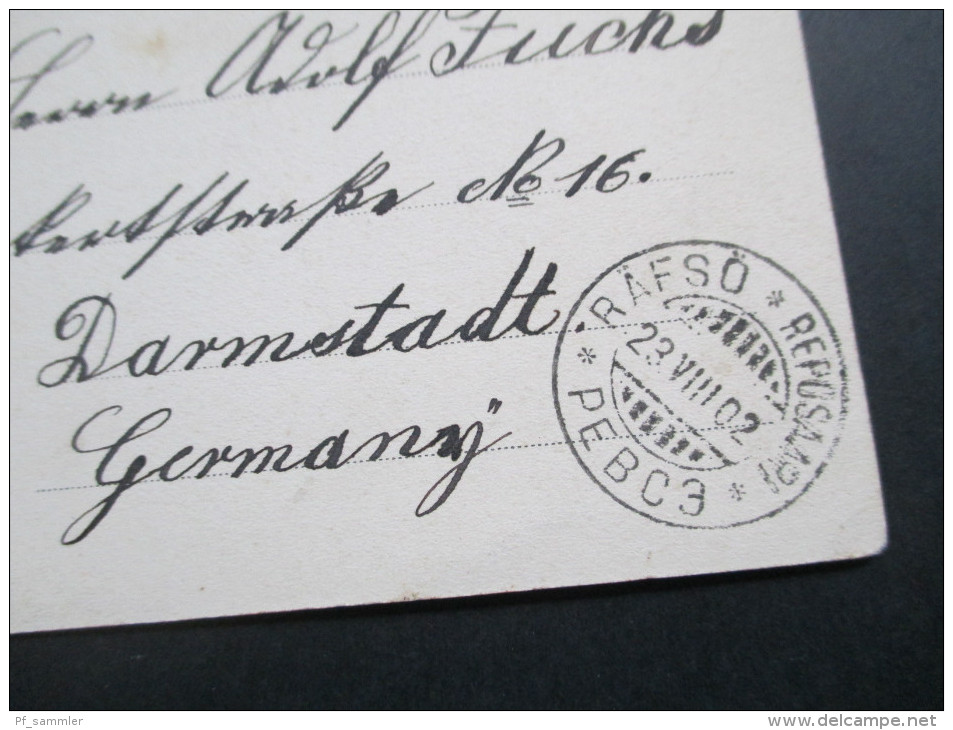 Herrn Adolf Fuchs
No 16.
Darmstadt.
Germany"
RÄFSÖ * REPOSAARI * РЕВСЭ *
23 VIII 02
Pf_sammler
www.delcampe.net